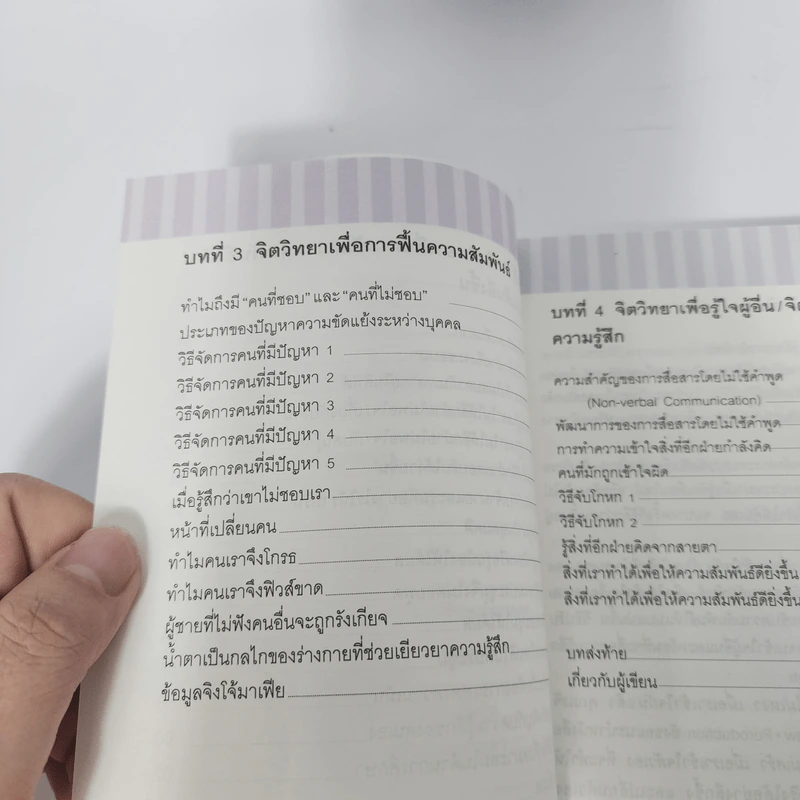 บทที่ 3 จิตวิทยาเพื่อการฟื้นความสัมพันธ์
ทำไมถึงมี "คนที่ชอบ" และ "คนที่ไม่ชอบ"
ประเภทของปัญหาความขัดแย้งระหว่างบุคคล
วิธีจัดการคนที่มีปัญหา 1
วิธีจัดการคนที่มีปัญหา 2
วิธีจัดการคนที่มีปัญหา 3
วิธีจัดการคนที่มีปัญหา 4
วิธีจัดการคนที่มีปัญหา 5
เมื่อรู้สึกว่าเขาไม่ชอบเรา
หน้าที่เปลี่ยนคน
ทำไมคนเราจึงโกรธ
ทำไมคนเราจึงฟิวส์ขาด
ผู้ชายที่ไม่ฟังคนอื่นจะถูกรังเกียจ
น้ำตาเป็นกลไกของร่างกายที่ช่วยเยียวยาความรู้สึก
ข้อมูลจิงโจ้มาเฟีย
บทที่ 4 จิตวิทยาเพื่อรู้ใจผู้อื่น/
ความรู้สึก
ความสำคัญของการสื่อสารโดยไม่ใช้คำพูด
(Non-verbal Communication)
พัฒนาการของการสื่อสารโดยไม่ใช้คำพูด
การทำความเข้าใจสิ่งที่อีกฝ่ายกำลังคิด
คนที่มักถูกเข้าใจผิด
วิธีจับโกหก 1
วิธีจับโกหก 2
รู้สิ่งที่อีกฝ่ายคิดจากสายตา
สิ่งที่เราทำได้เพื่อให้ความสัมพันธ์ดียิ่งขึ้น
สิ่งที่เราทำได้เพื่อให้ความสัมพันธ์ดียิ่งขึ้น
บทส่งท้าย
เกี่ยวกับผู้เขียน